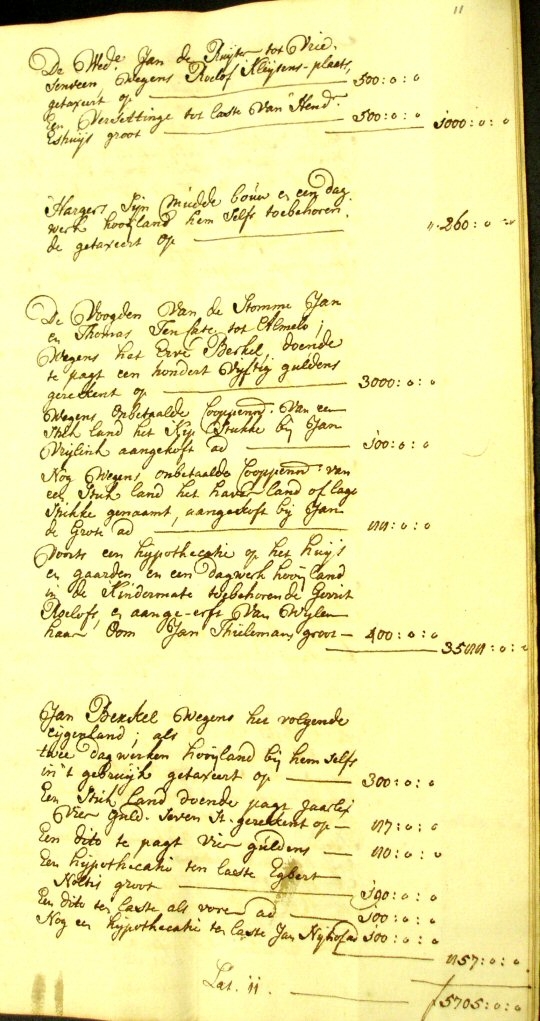 11
De Wed: Jan de Ruyter tot Vrie.
senveen, Wegens Roelof Kleysens-plaats,
getaxeert op 500:0:0
Een Versettinge tot laste Van Hend:
Eshuijs groot 500:0:0 1000:0:0
Hargers Sijn mudde bouw en een dag
werk hooyland hem Selfs toebehoren
de getaxeert op 260:0
De Voogden Van de Stomme Jan
en Thomas Ten Cate tot Almelo;
Wegens het Erve Berkel, doende
te pagt een hondert Vyftig guldens
gerekent op 3000:0:0
Wegens onbetaalde Cooppenn: Van een
Stuk land het Stukke bij Jan
Vrylink aangekoft ad 100:0:0
Nog Wegens onbetaalde Cooppenn: van
een Stuk land het haver land of lage
Stukke genaamt, aangekoft bij Jan
de Grote ad :0:0
Voorts een hypothecatie op het huijs
en gaarden en een dagwerk hooyland
in de Kindermate toebehorende Gerrit
Roelofs, en aange-erft Van Wylen
haar Oom Jan Thieleman, groot 400:0:0
:0:0
Jan Berkel Wegens het volgende
Eygenland; als
twee dagwerken hooyland bij hem selfs
in't gebruijk getaxeert op 300:0:0
Een Stuk Land doende pagt Jaarlix
Vier guld. Seven St. gerekent op :0:0
Een dito te pagt Vier guldens :0:0
Een hypothecatie ten laste Egbert
groot :0:0
Een dito ten laste als voren ad 100:0:0
Nog een hypothecatie ten laste Jan Nyhof ad 100:0:0
:0:0
Lat. 11. f 5705:0:0